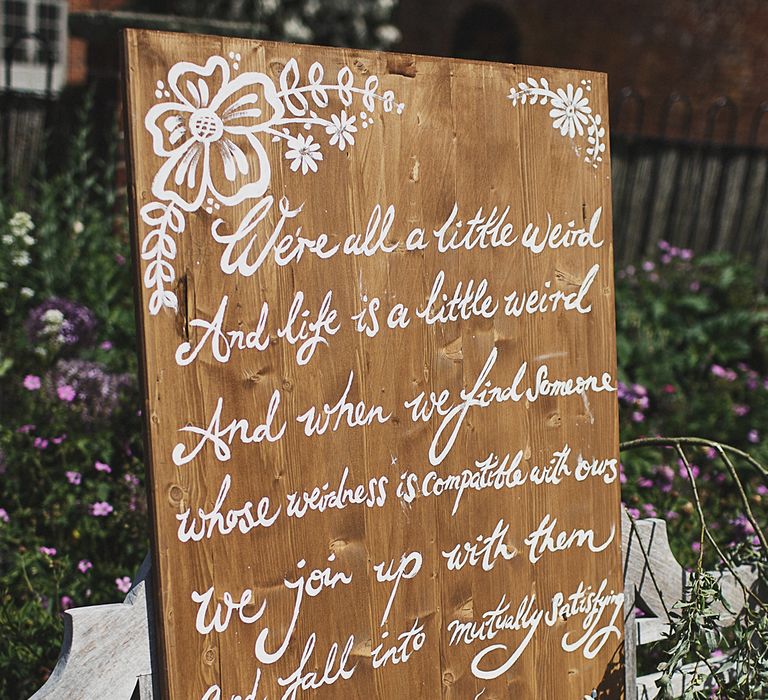 We're all a little weird
And life is a little weird
And when we find Someone
whose weirdness is compatible with ours
we join up with them
And fall into mutually Satisfying